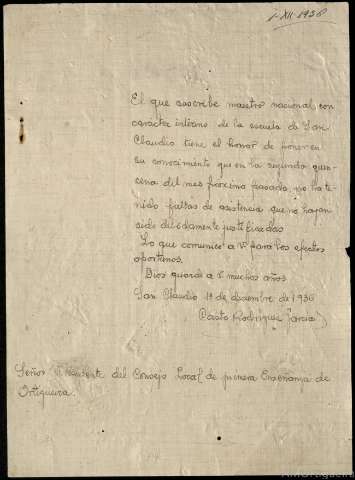 1-XII-1936
El que suscribe maestro nacional con
caracter interino de la escuela de San
Claudio tiene el honor de poner en
su conocimiento que en la segunda quin-
cena del mes proximo pasado, no ha te-
nido faltas de asistencia que no hayan
sido debidamente justificadas
Lo que comunico a Vd para los efectos
oportunos.
Dios guarde a V. muchos años
San Claudio 1º de diciembre de 1936
Casto Rodriguez Garcia
Señor Presidente del Consejo Local de primera Enseñanza de
Ortigueira.